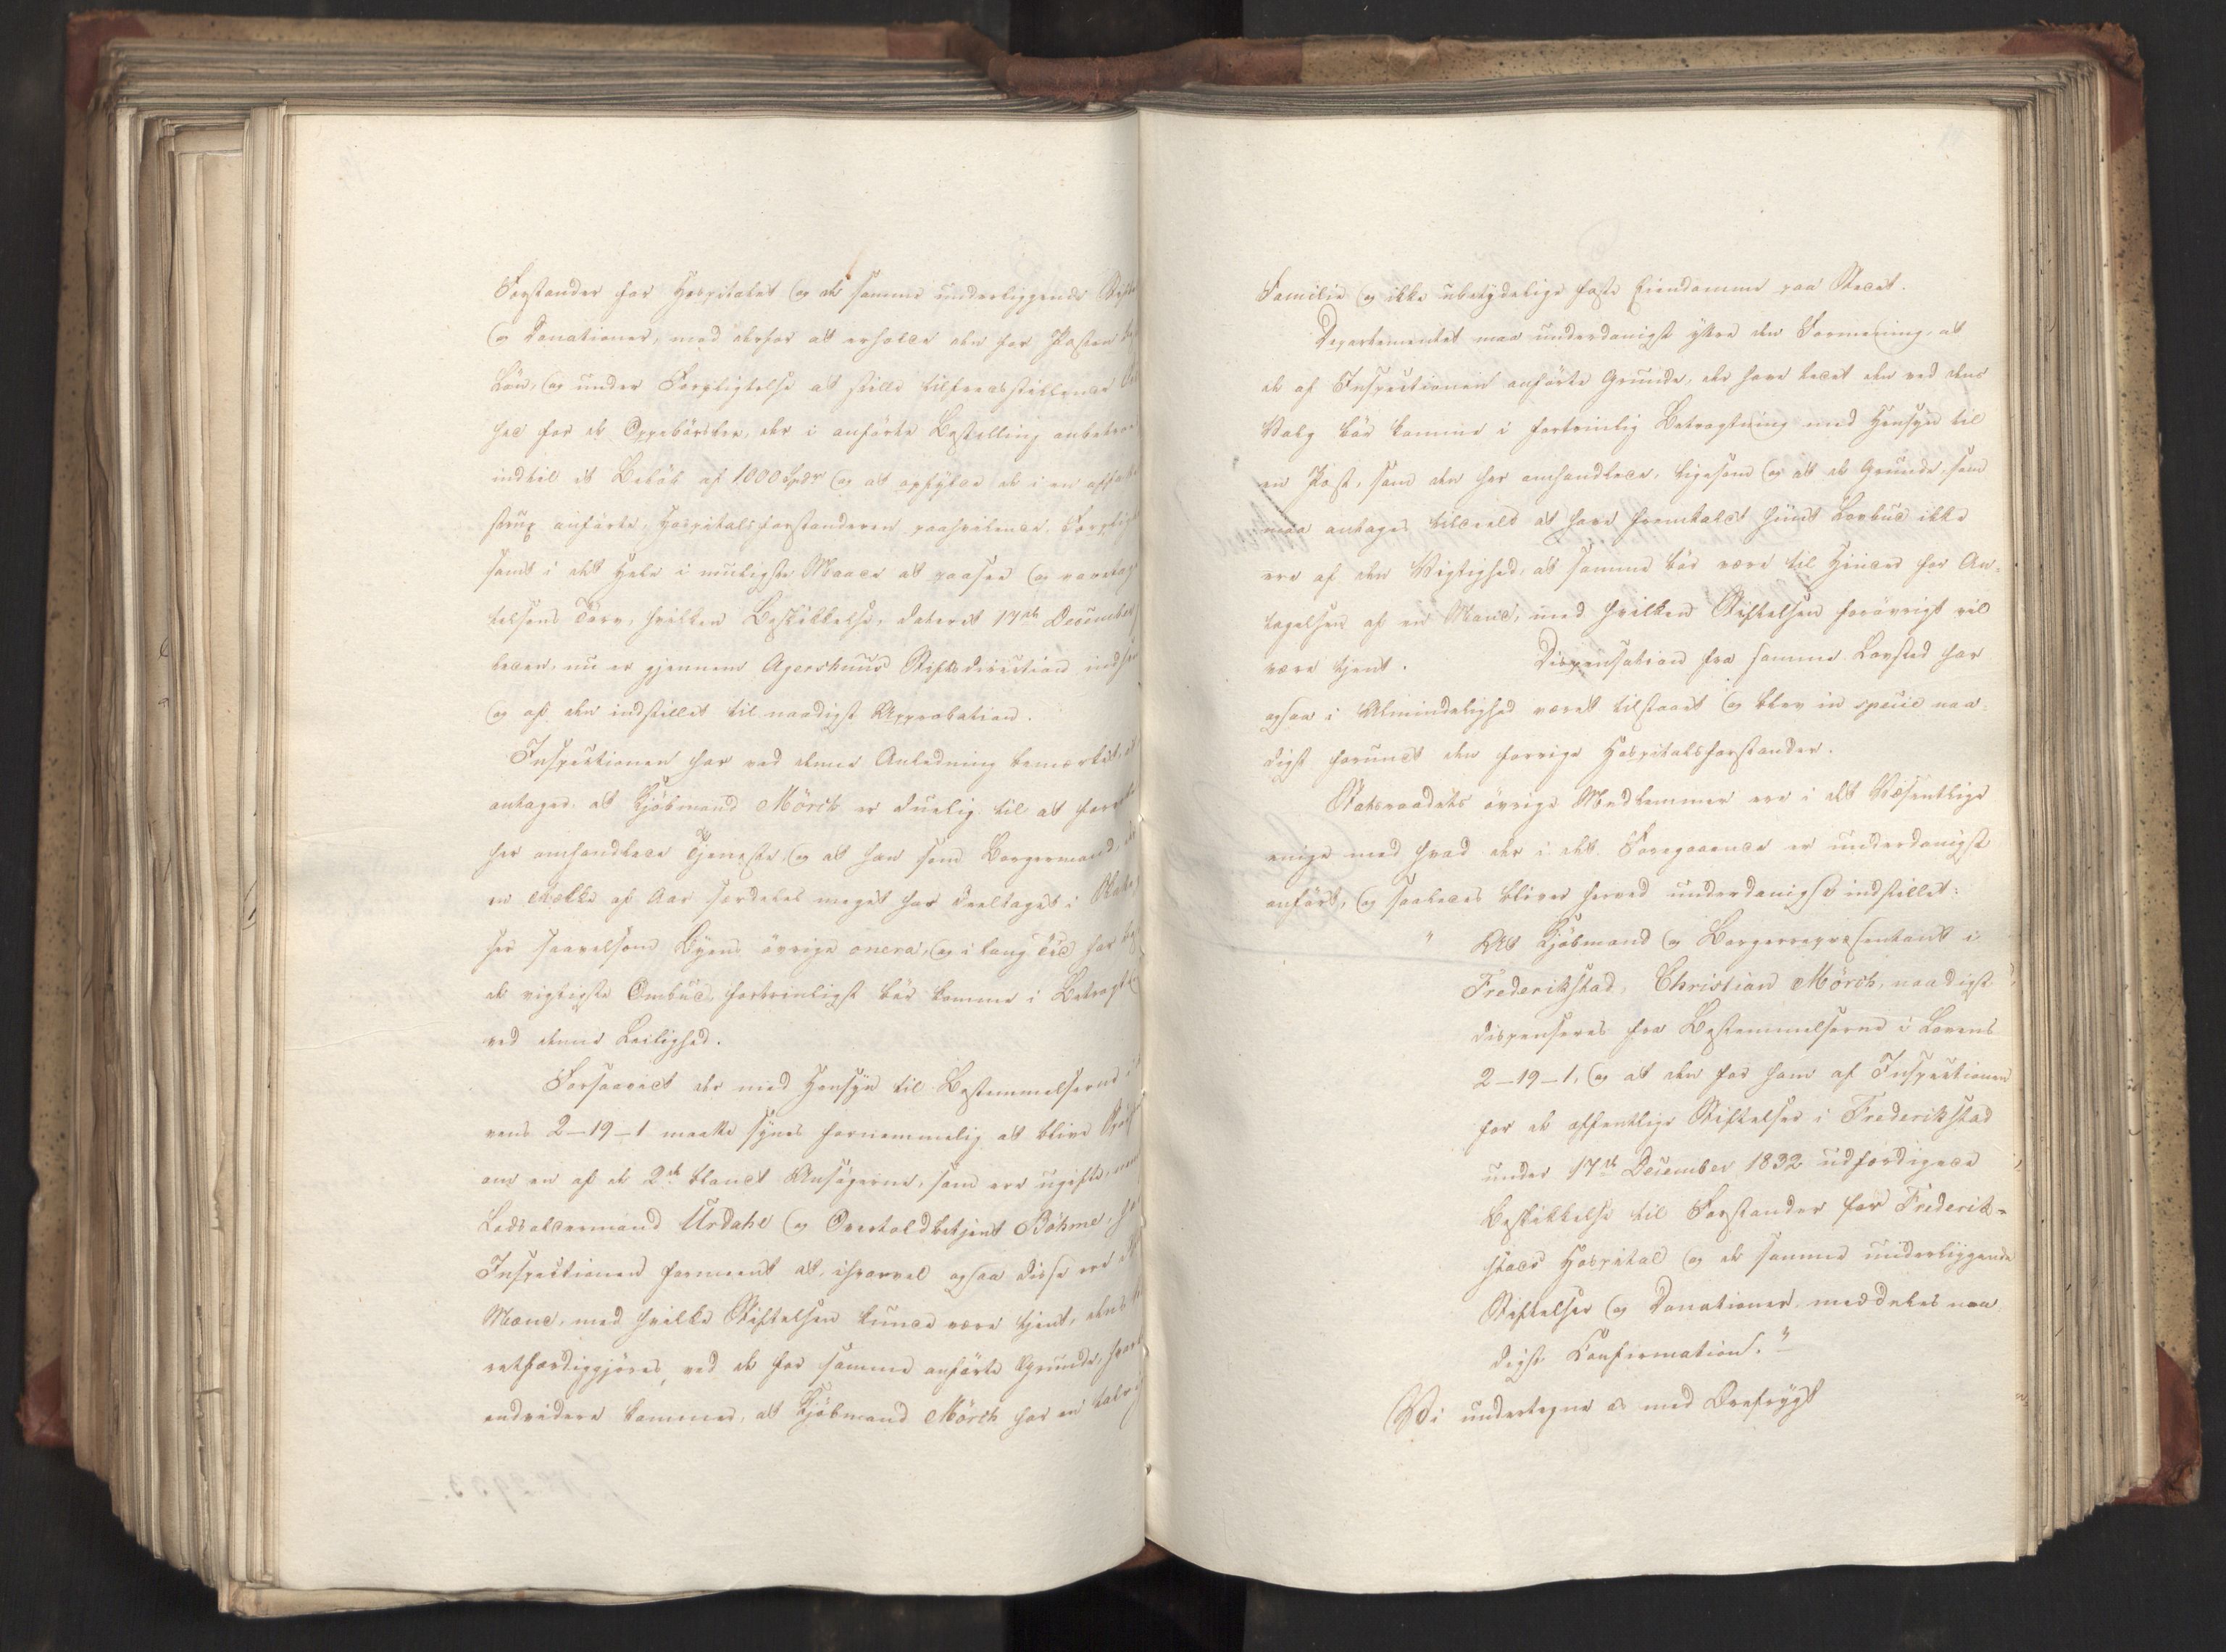 Forstander for Hospitalet og de samme underliggende
og Donationer, mod derfor at erholde den for Posten
Løn, og under Forpligtelse at stille tilfredsstillende
hed for de Oppebørsler, der i anførte Bestilling anbetroes
indtil et Beløb af 1000 Spdr og at opfylde de i en
anførte, Hospitalsforstanderen paahvilende
samt i det Hele i muligste Maade at paasee og varetage
telsens Tarv, hvilken Beskikkelse, dateret 17de December
, nu er gjennem Agershuus Stiftsdirection
og af den indstillet til naadigst Approbation.
Inspectionen har ved denne Anledning bemærket,
antages, at Kjøbmand Mörch er duelig til at
her omhandlede Tjeneste, og at han som Borgermand,
en Række af Aar særdeles meget har deeltaget i
saavelsom Byens øvrige onera, og i lang Tid har
de vigtigste Ombud, fortrinligst bør komme i
ved denne Leilighed.
Forsaavidt der med Hensyn til Bestemmelserne i
vens 2-19-1 maatte synes fornemmelig at blive
om en af de 2de blandt Ansøgerne, som ere ugifte,
Lodsoldermand Urdahl og Overtoldbetjent Böhme,
Inspectionen formeent at, ihvorvel ogsaa disse ere
Mænd, med hvilke Stiftelsen kunde være tjent,
retfærdiggjøres, ved de for samme anførte Grunde,
endvidere kommer, at Kjøbmand Mörch har en talrig
Familie og ikke ubetydelige faste Eiendomme paa Stedet.
Departementet maa underdanigst yttre den Formening, at
de af Inspectionen anførte Grunde, der have ledet den ved dens
Valg bør komme i fortrinlig Betragtning med Hensyn til
en Post, som den her omhandlede, ligesom og at de Grunde, som
maa antages tildeels at have fremkaldt hiint Lovbud ikke
ere af den Vigtighed, at samme bør være til Hinder for An-
tagelsen af en Mand, med hvilken Stiftelsen forøvrigt vil
være tjent. Dispensation fra samme Lovsted har
ogsaa i Almindelighed været tilstaaet og blev in specie naa-
digst forundt den forrige Hospitalsforstander.
Statsraadets øvrige Medlemmer ere i det Væsentlige
enige med hvad der i det Foregaaende er underdanigst
anført, og saaledes bliver herved underdanigst indstillet:
" At Kjøbmand og Borgerrepræsentant i
Frederikstad, Christian Mörch, naadigst
dispenseres fra Bestemmelserne i Lovens
2-19-1, og at den for ham af Inspectionen
for de offentlige Stiftelser i Frederikstad
under 17de December 1832 udfærdigede
Beskikkelse til Forstander for Frederik-
stads Hospital og de samme underliggende
Stiftelser og Donationer, meddeles naa
digst Confirmation."
Vi undertegne os med Ærefrygt